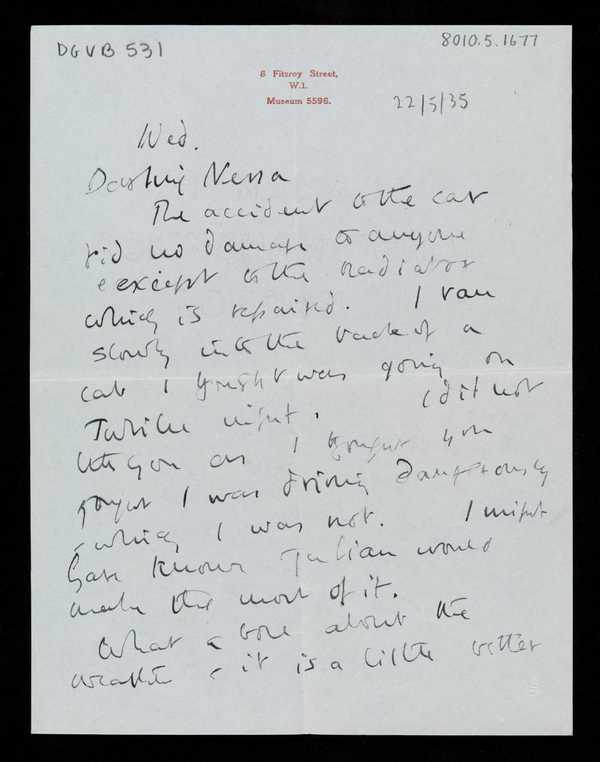 DGVB 531
8010.5.1677
8 Fitzroy Street,
W.1.
Museum 5596.
22/5/35
Wed.
Darling Nessa
The accident to the car
did no damage to anyone
except to the radiator
which is repaired. I ran
slowly into the back of a
cab I thought was going on
Jubilee night. I did not
tell you as I thought you
thought I was driving dangerously
- which I was not. I might
have known Julian would
make the most of it.
What a bore about the
weather - it is a little better